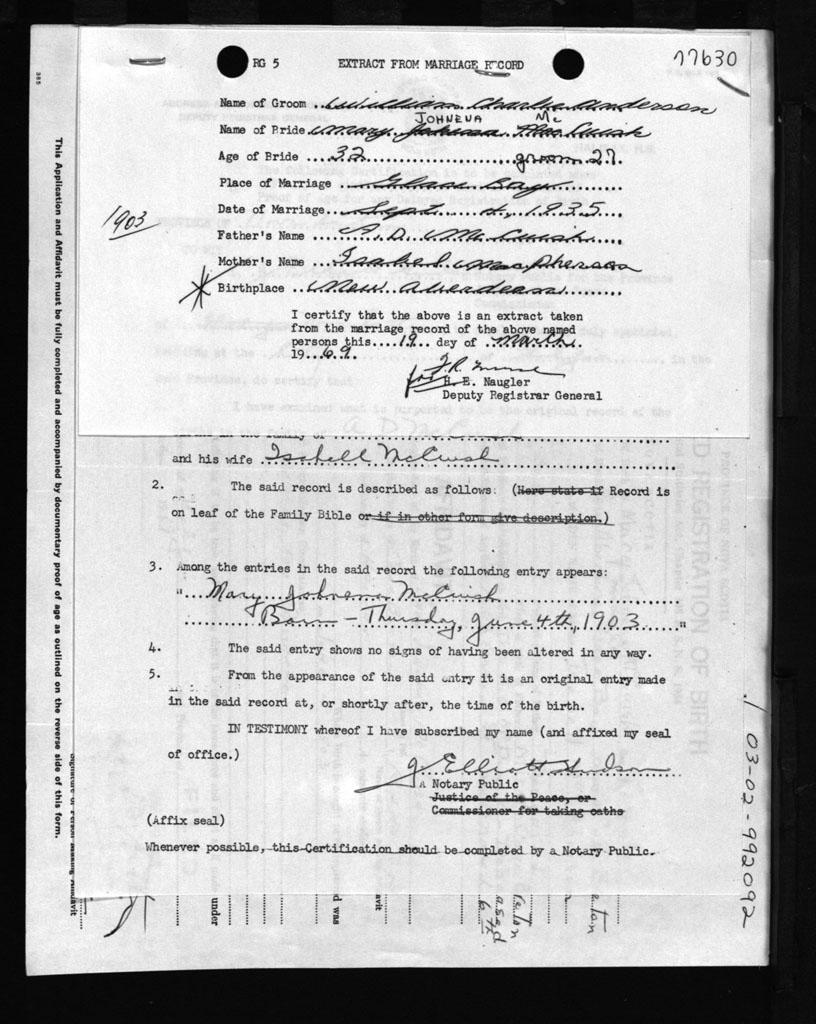 RG 5 EXTRACT FROM MARRIAGE RECORD 77630
Name of Groom .. William Charles Anderson
JOHNENA Mc
Name of Bride Mary Johnena MacCuish
Age of Bride ... 32 ... groom 27.
Place of Marriage ... Glace Bay
Date of Marriage. Sept. 4, 1935
1903
Father's Name .. A. D. McCuish
Mother's Name .. Isabel MacPherson
Birthplace .. New Aberdeen
I certify that the above is an extract taken
from the marriage record of the above named
persons this....19.. day of March.
19...69.
for
H. E. Naugler
Deputy Registrar General
A D McCuish
and his wife Isabell McCuish
2. The said record is described as follows: (Here state if Record is
on leaf of the Family Bible or if in other form give description.)
3. Among the entries in the said record the following entry appears:
"... Mary Johnena McCuish
Born - Thursday, June 4th, 1903 "
4. The said entry shows no signs of having been altered in any way.
5. From the appearance of the said entry it is an original entry made
in the said record at, or shortly after, the time of the birth.
IN TESTIMONY whereof I have subscribed my name (and affixed my seal
of office.)
J. Elliott Hudson
A Notary Public
Justice of the Peace, or
Commissioner for taking oaths
(Affix seal)
Whenever possible, this Certification should be completed by a Notary Public.
This Application and Affidavit must be fully completed and accompanied by documentary proof of age as outlined on the reverse side of this form.
385
03-02-992092
under
d was
avit
D REGISTRATION OF BIRTH